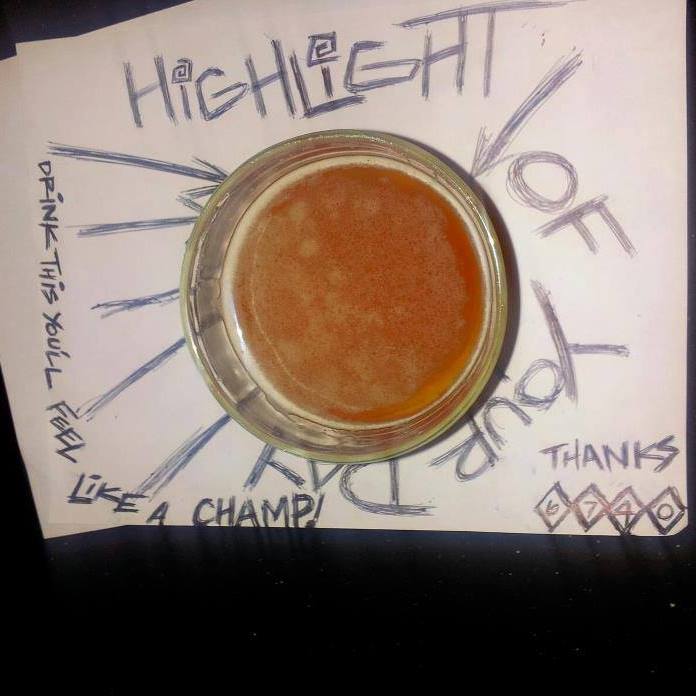 HiGHLiGHT
OF
YOUR
DAY
DRINK THIS YOU'LL FEEL
LIKE A CHAMP!
THANKS
6740